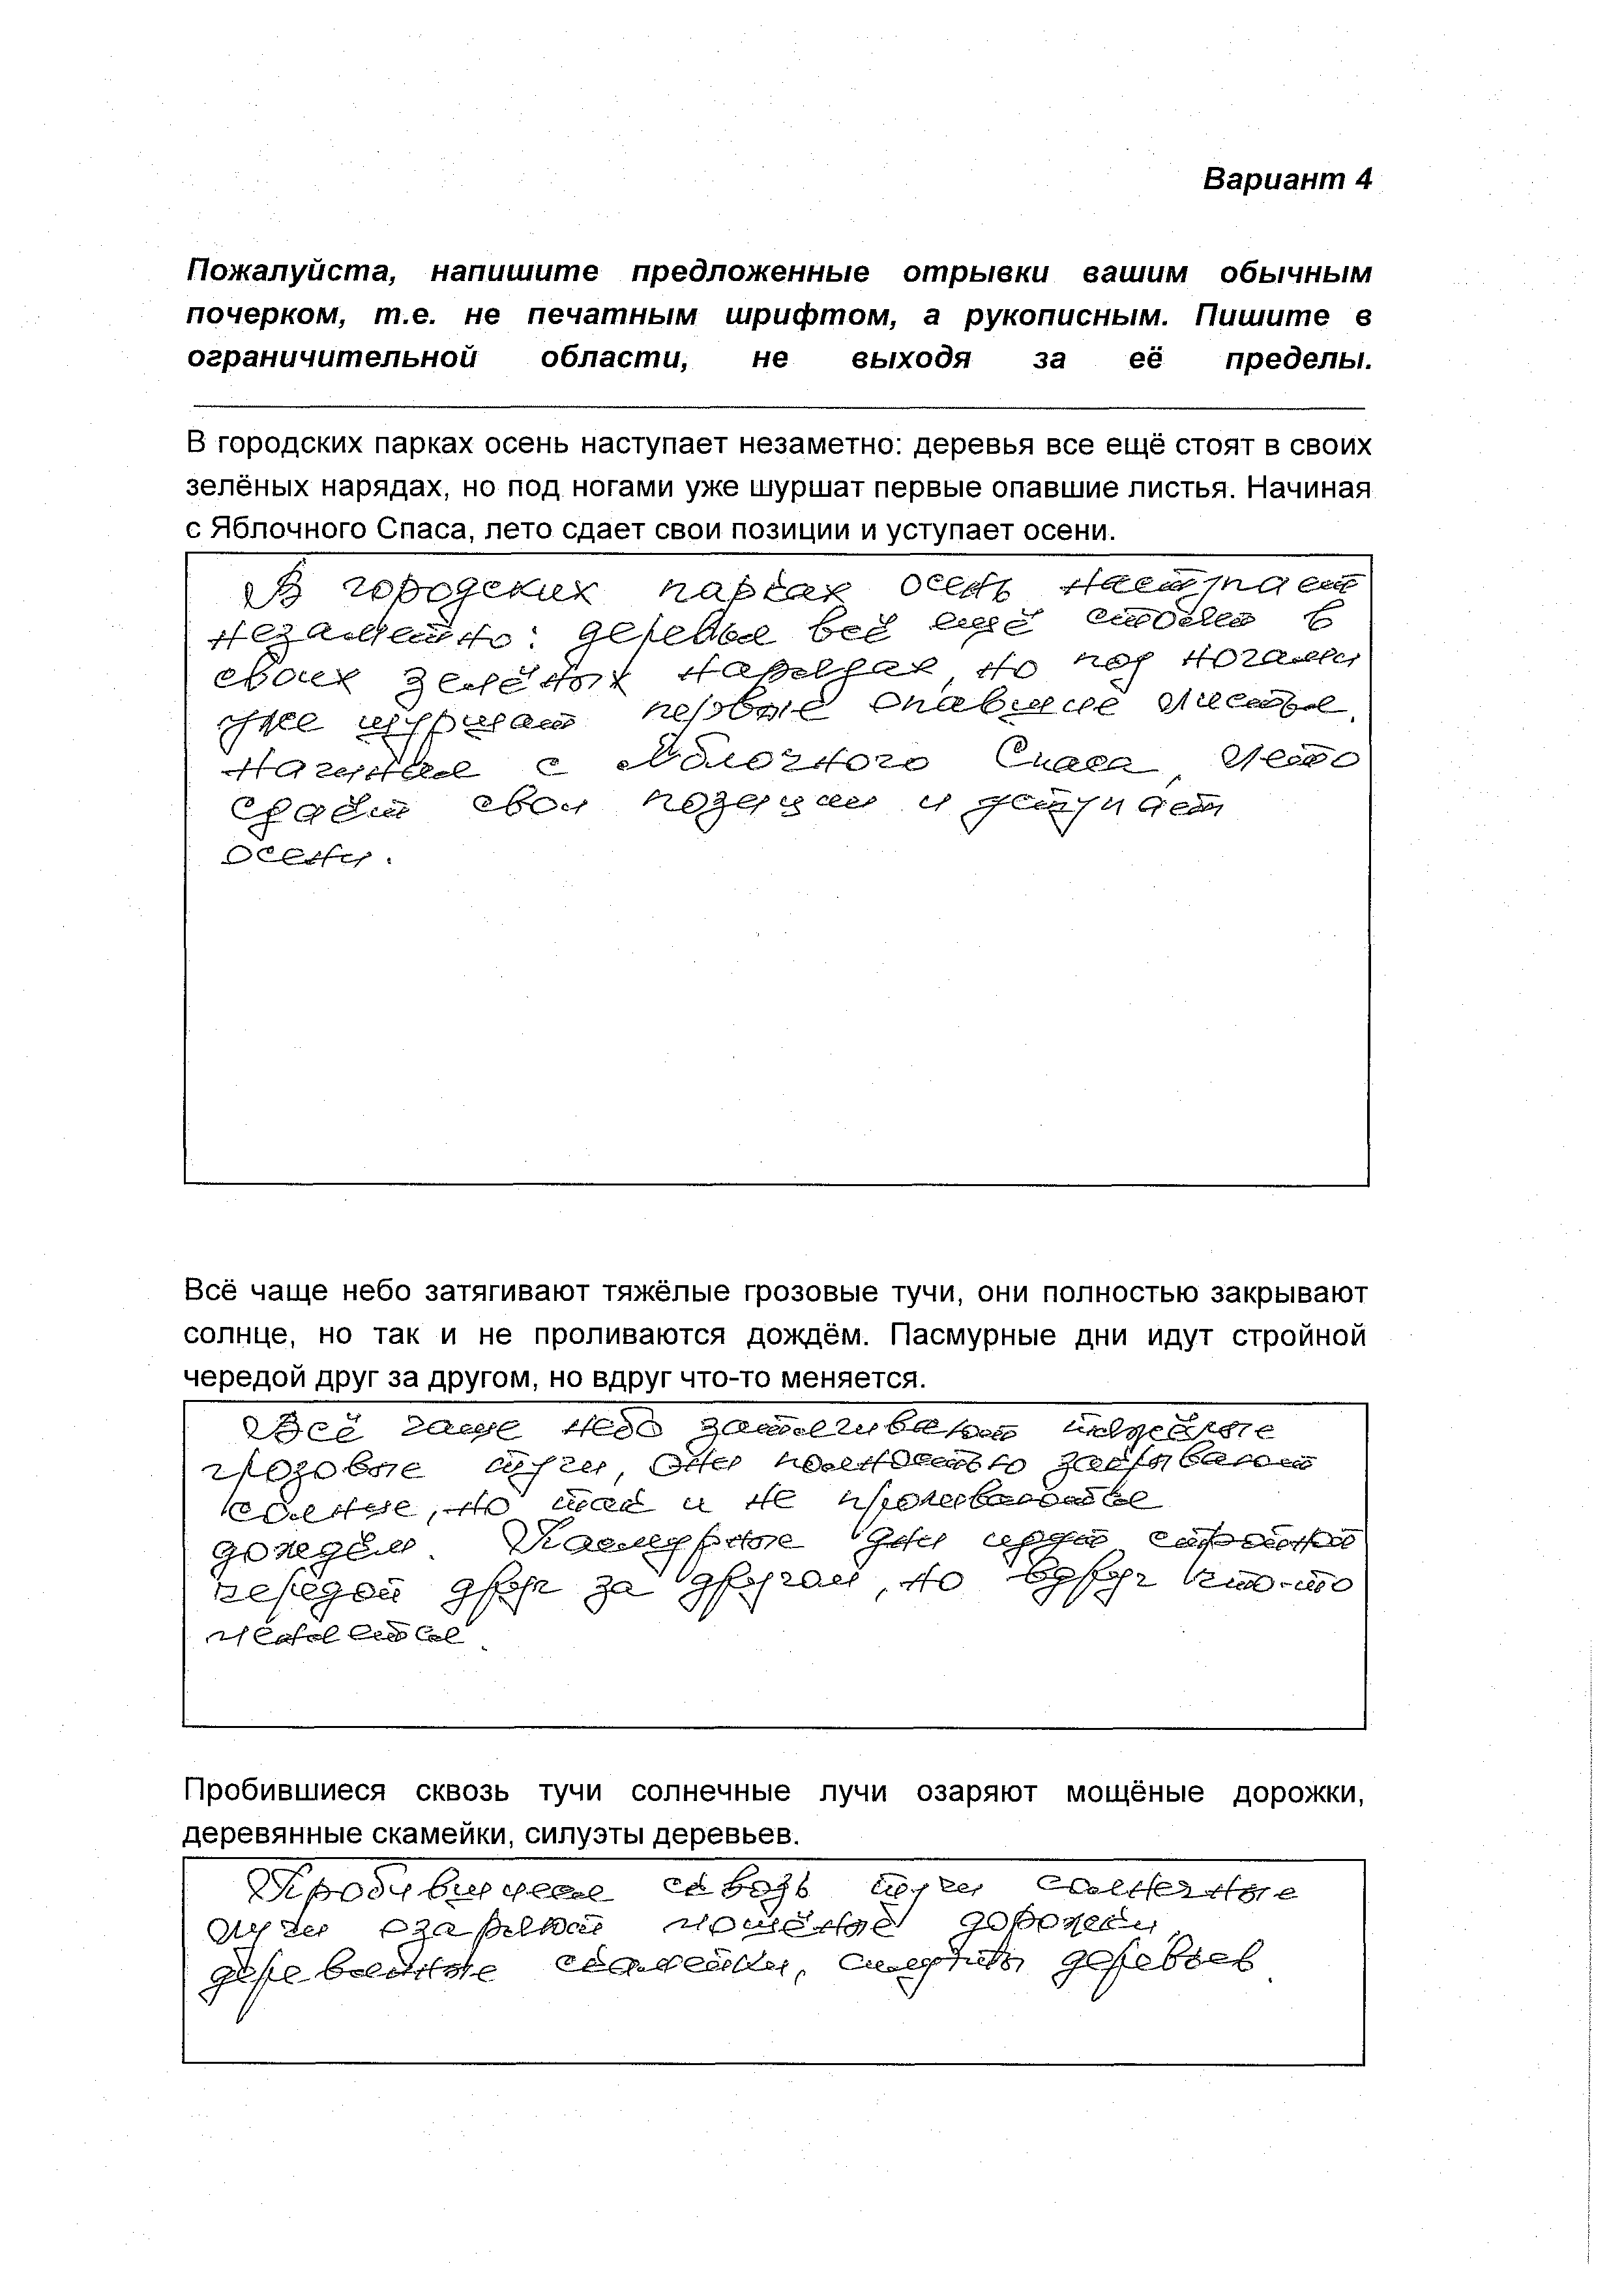 Вариант 4
Пожалуйста, напишите предложенные отрывки вашим обычным
почерком, т.е. не печатным шрифтом, а рукописным. Пишите в
ограничительной области, не выходя за её пределы.
В городских парках осень наступает незаметно: деревья все ещё стоят в своих
зелёных нарядах, но под ногами уже шуршат первые опавшие листья. Начиная
с Яблочного Спаса, лето сдает свои позиции и уступает осени.
В городских парках осень наступает
незаметно: деревья всё ещё стоят в
своих зелёных нарядах, но под ногами
уже шуршат первые опавшие листья.
Начиная с Яблочного Спаса, лето
сдаёт свои позиции и уступает
осени.
Всё чаще небо затягивают тяжёлые грозовые тучи, они полностью закрывают
солнце, но так и не проливаются дождём. Пасмурные дни идут стройной
чередой друг за другом, но вдруг что-то меняется.
Всё чаще небо затягивают тяжёлые
грозовые тучи, они полностью закрывают
солнце, но так и не проливаются
дождём. Пасмурные дни идут стройной
чередой друг за другом, но вдруг что-то
меняется.
Пробившиеся сквозь тучи солнечные лучи озаряют мощёные дорожки,
деревянные скамейки, силуэты деревьев.
Пробившиеся сквозь тучи солнечные
лучи озаряют мощёные дорожки,
деревянные скамейки, силуэты деревьев.